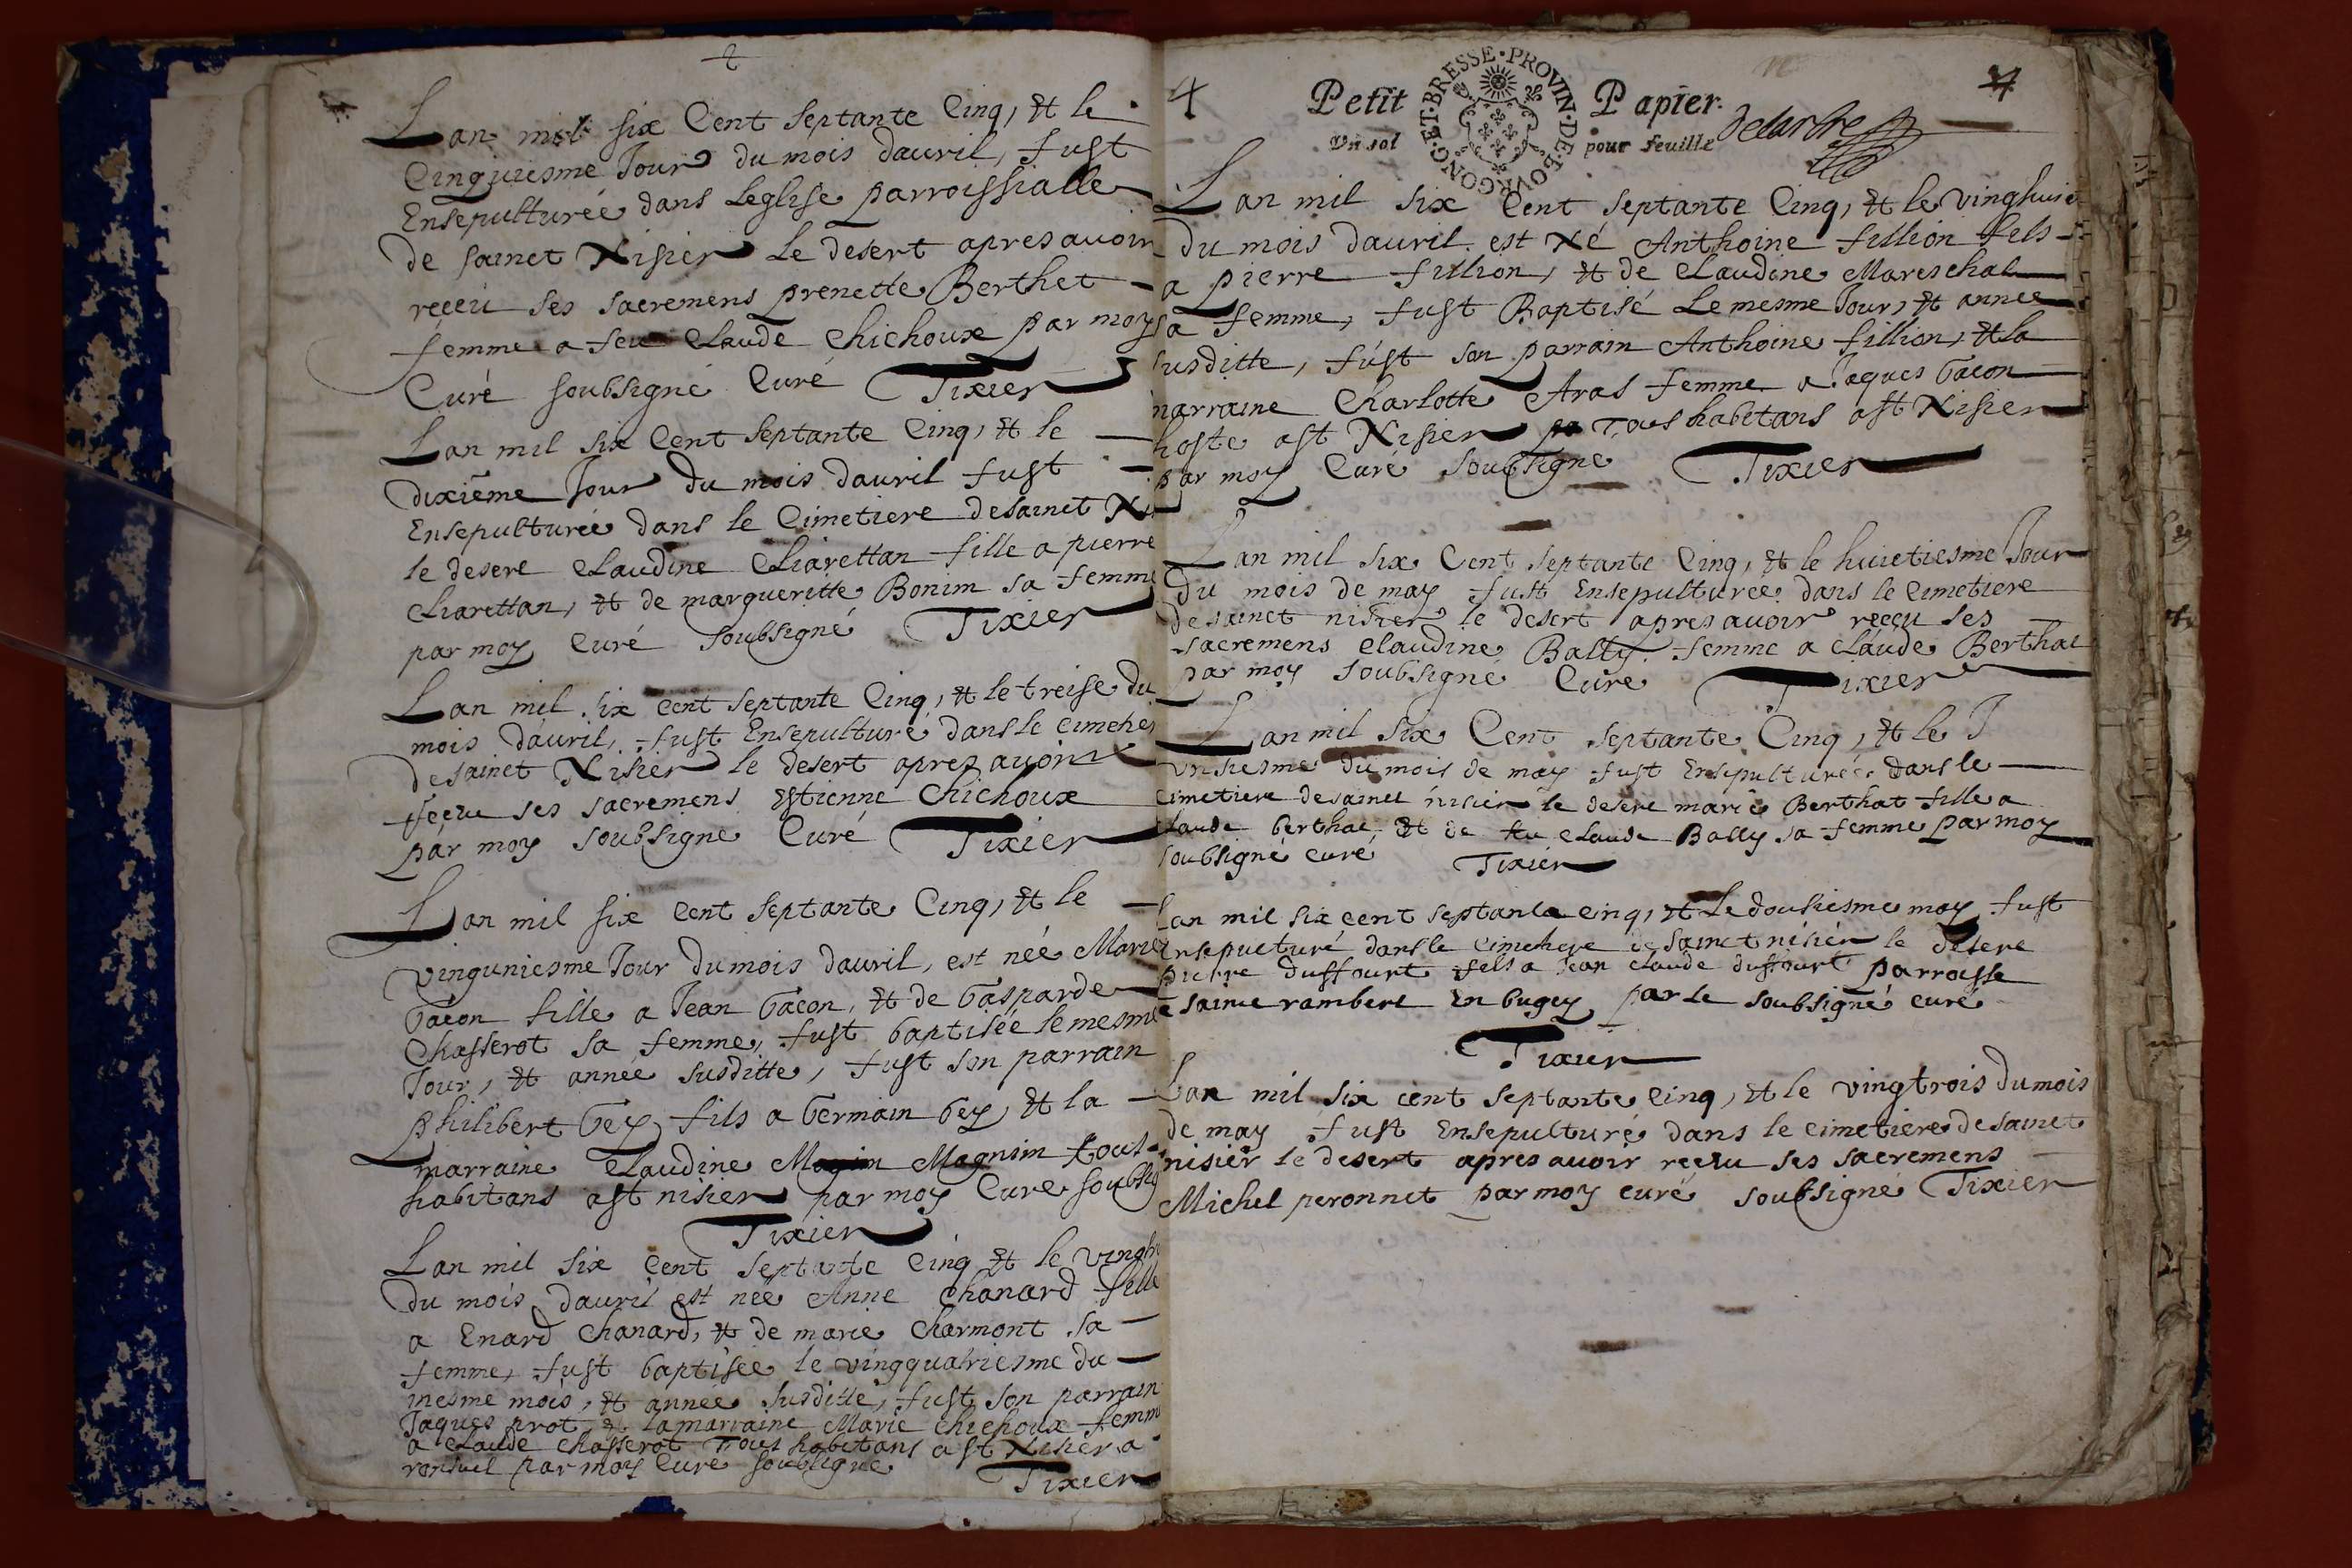 Lan mil six Cent septante Cinq, et le
Cinquiesme Jour du mois dauril, fust
Ensepulturée dans Leglise parroissialle
de sainct Nisier Le desert apres auoir
receu ses sacremens prenette Berthet
femme a feu Claude Chichoux par moy
Curé soubsigné Curé Tixier
Lan mil six Cent septante Cinq, et le
dixiême Jour du mois dauril fust
Ensepulturée dans le Cimetiere de sainct
le desere Claudine Charettan fille a pierre
Charettan, et de margueritte Bonim sa femme
par moy Curé soubsigné Tixier
Lan mil six cent septante Cinq, et le treise du
mois dauril, fust Ensepulturé dans le
de sainct Nisier le desert apres auoir
receu ses sacremens Estienne Chichoux
par moy soubsigné Curé Tixier
Lan mil six cent septante Cinq, et le
vinguniesme Jour du mois dauril, est née Marie
Gacon fille a Jean Gacon, et de Gasparde
Chasserot sa femme, fust baptisée le mesme
Jour, et année susditte, fust son parrain
philibert Gey fils a Germain Gey, et la
marraine Claudine Magnin tous
habitans a st nisier par moy Cure
Tixier
Lan mil six Cent septante Cinq et le
du mois dauril est née Anne Chanard fille
a Enard Chanard, et de marie Charmont sa
femme, fust baptisée le vingquatriesme du
mesme mois, et année susditte, fust son parrain
Jaques prot, et la marraine Marie Chichoux femme
a Claude Chasserot Tous habitans a st Nisier a
par moy Curé soubsigné Tixier
4 Petit Papier 4
Un sol pour feuille
BOVRGONG·ET·BRESSE·PROVIN·DE
Lan mil six Cent septante Cinq, et le
du mois dauril est Né Anthoine fillion fils
a pierre fillion, et de Claudine Mareschal
sa femme, fust Baptisé Le mesme Jour, et année
susditte, fust son parrain Anthoine fillion, et la
marraine Charlotte Aras femme a Jaques Gacon
hoste a st Nisier Tous habitans a st Nisier
par moy Curé soubsigné Tixier
Lan mil six Cent septante Cinq, et le huictiesme Jour
du mois de may fust Ensepulturée dans le Cimetiere
de sainct nisier le desert apres auoir receu ses
sacremens Claudine Bally femme a Claude Berthat
par moy soubsigné Curé Tixier
Lan mil six Cent septante Cinq, et le J
unsiesme du mois de may fust Ensepulturée dans le
Cimetiere de sainct nisier le desere marie Berthat fille a
Claude berthat, et de Claude Bally sa femme par moy
soubsigné curé Tixier
Lan mil six cent septante cinq, et Le dousiesme may fust
Ensepulturé dans le de sainct nisier le desere
pierre duffourt fils a Jean Claude duffourt parroisse
saint rambert en bugey par le soubsigné curé
Tixier
Lan mil six cent septante cinq, et le vingtrois du mois
de may fust Ensepulturé dans le cimetiere de sainct
nisier le desert apres auoir receu ses sacremens
Michel peronnet par moy curé soubsigné Tixier